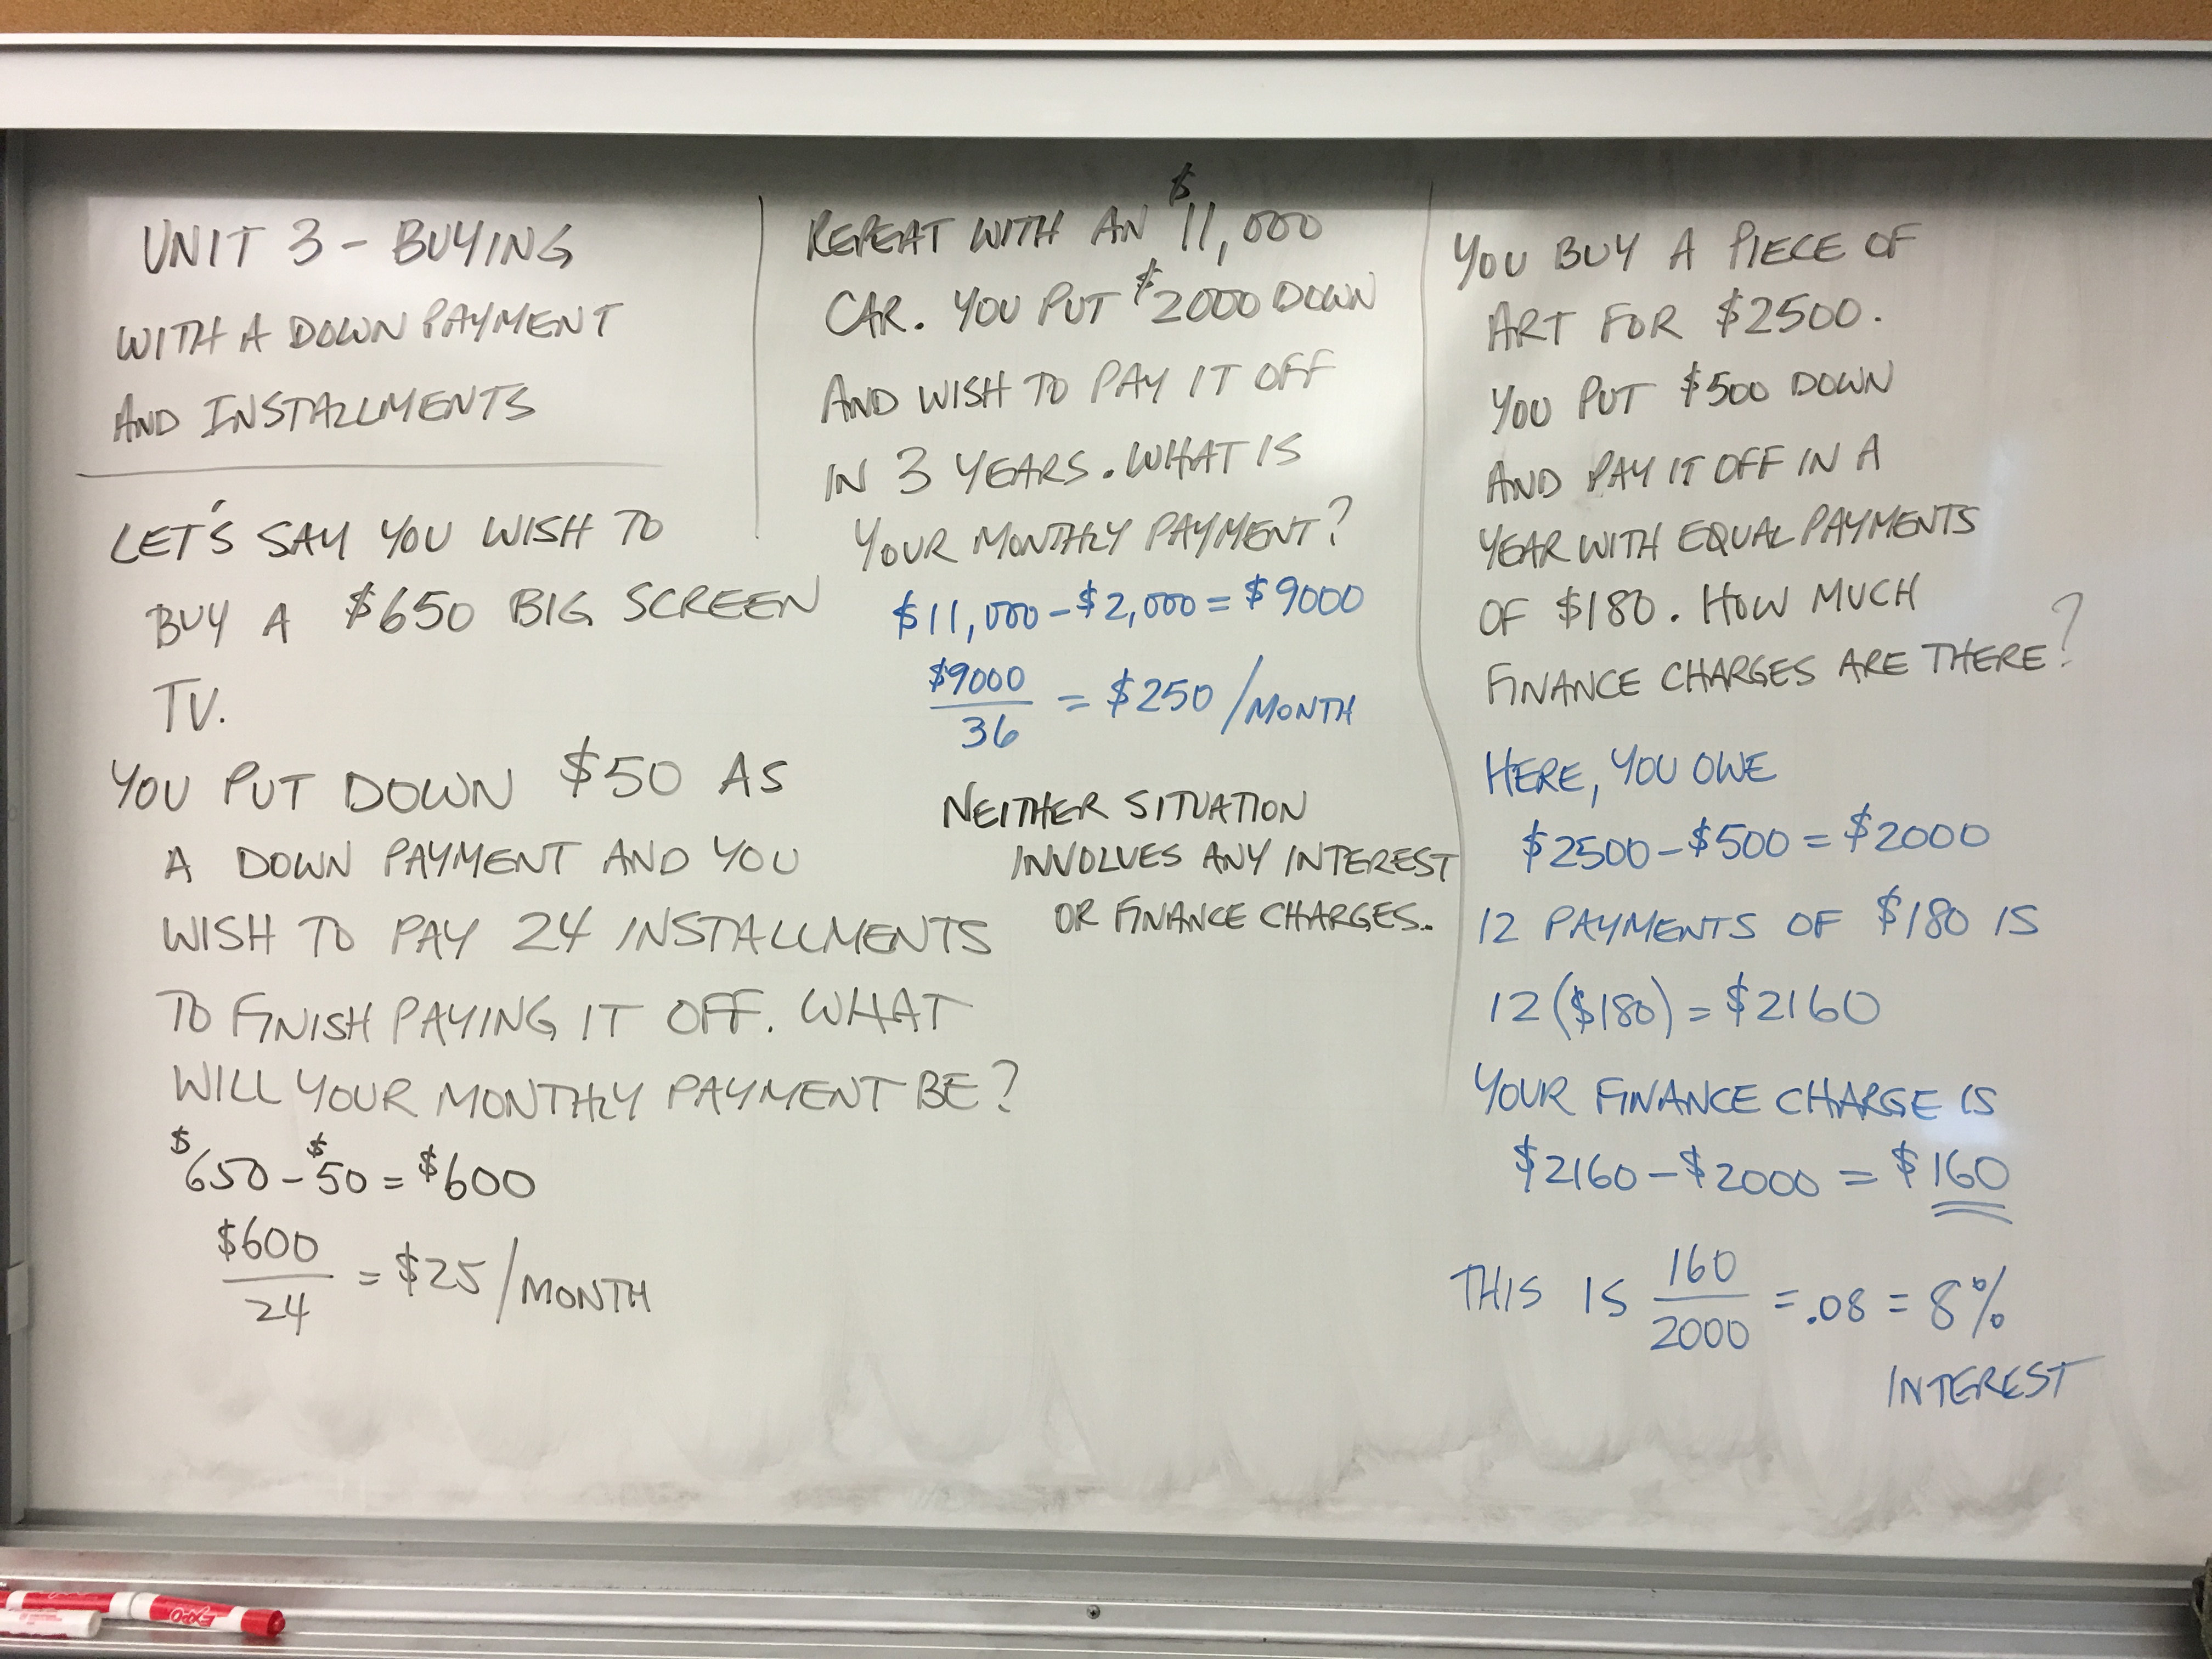 UNIT 3 - BUYING
WITH A DOWN PAYMENT
AND INSTALLMENTS
LET'S SAY YOU WISH TO
BUY A $650 BIG SCREEN
TV.
YOU PUT DOWN $50 AS
A DOWN PAYMENT AND YOU
WISH TO PAY 24 INSTALLMENTS
TO FINISH PAYING IT OFF. WHAT
WILL YOUR MONTHLY PAYMENT BE?
$650 - $50 = $600
$600
24
= $25/MONTH
REPEAT WITH AN $11,000
CAR. YOU PUT $2000 DOWN
AND WISH TO PAY IT OFF
IN 3 YEARS. WHAT IS
YOUR MONTHLY PAYMENT?
$11,000 - $2,000 = $9000
$9000
36
= $250/MONTH
NEITHER SITUATION
INVOLVES ANY INTEREST
OR FINANCE CHARGES..
YOU BUY A PIECE OF
ART FOR $2500.
YOU PUT $500 DOWN
AND PAY IT OFF IN A
YEAR WITH EQUAL PAYMENTS
OF $180. HOW MUCH
FINANCE CHARGES ARE THERE?
HERE, YOU OWE
$2500 - $500 = $2000
12 PAYMENTS OF $180 IS
12($180) = $2160
YOUR FINANCE CHARGE IS
$2160 - $2000 = $160
THIS IS 160
2000
= .08 = 8%
INTEREST
EXPO